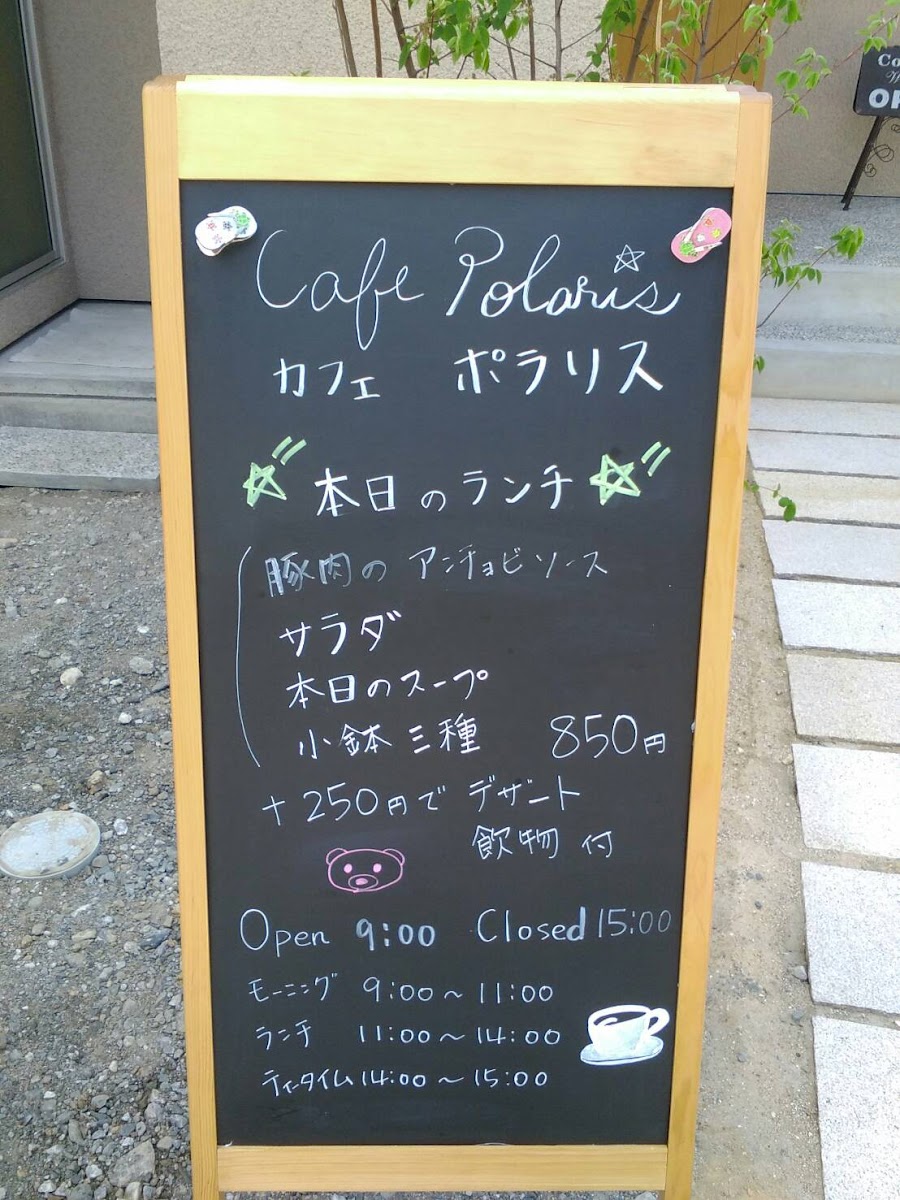 Cafe Polaris
カフェ ポラリス
本日のランチ
豚肉の アンチョビソース
サラダ
本日のスープ
小鉢三種 850円
+250円で デザート
飲物 付
Open 9:00 Closed 15:00
モーニング 9:00~11:00
ランチ 11:00~14:00
ティータイム 14:00~15:00